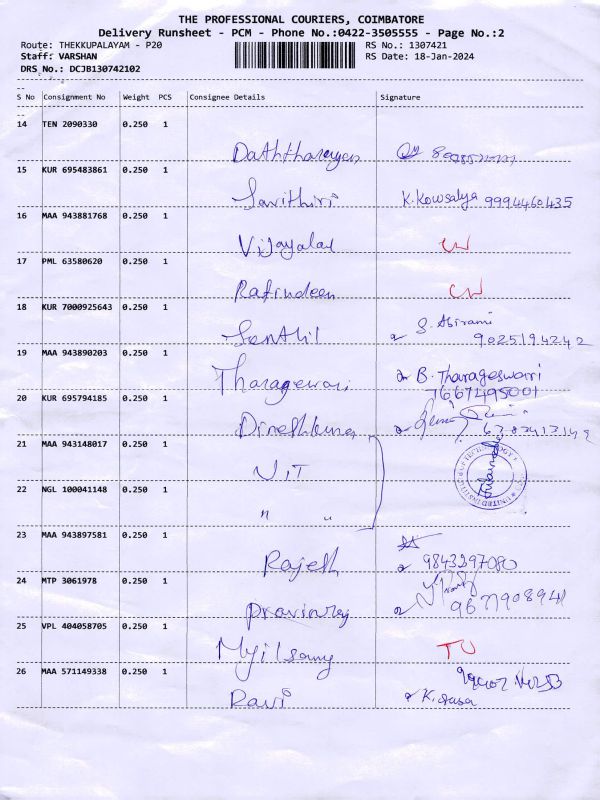 THE PROFESSIONAL COURIERS, COIMBATORE
Delivery Runsheet - PCM - Phone No.:0422-3505555 - Page No.:2
Route: THEKKUPALAYAM - P20 RS No.: 1307421
Staff: VARSHAN RS Date: 18-Jan-2024
DRS No.: DCJB130742102
S No Consignment No Weight PCS Consignee Details Signature
14 TEN 2090330 0.250 1
Daththareyan
15 KUR 695483861 0.250 1
Savithiri K. Kowsalya 9994460435
16 MAA 943881768 0.250 1
Vijayalax
17 PML 63580620 0.250 1
Rafindeen
18 KUR 7000925643 0.250 1
S. Abirami
Senthil 9025194242
19 MAA 943890203 0.250 1
Tharagewari B. Tharageswarri
7667495001
20 KUR 695794185 0.250 1
Dineshkumar
21 MAA 943148017 0.250 1
UIT
22 NGL 100041148 0.250 1
" "
23 MAA 943897581 0.250 1
Rajesh 9843297080
24 MTP 3061978 0.250 1
Pravinraj 9677908941
25 VPL 404058705 0.250 1
Myilsamy TU
26 MAA 571149338 0.250 1
Ravi K.